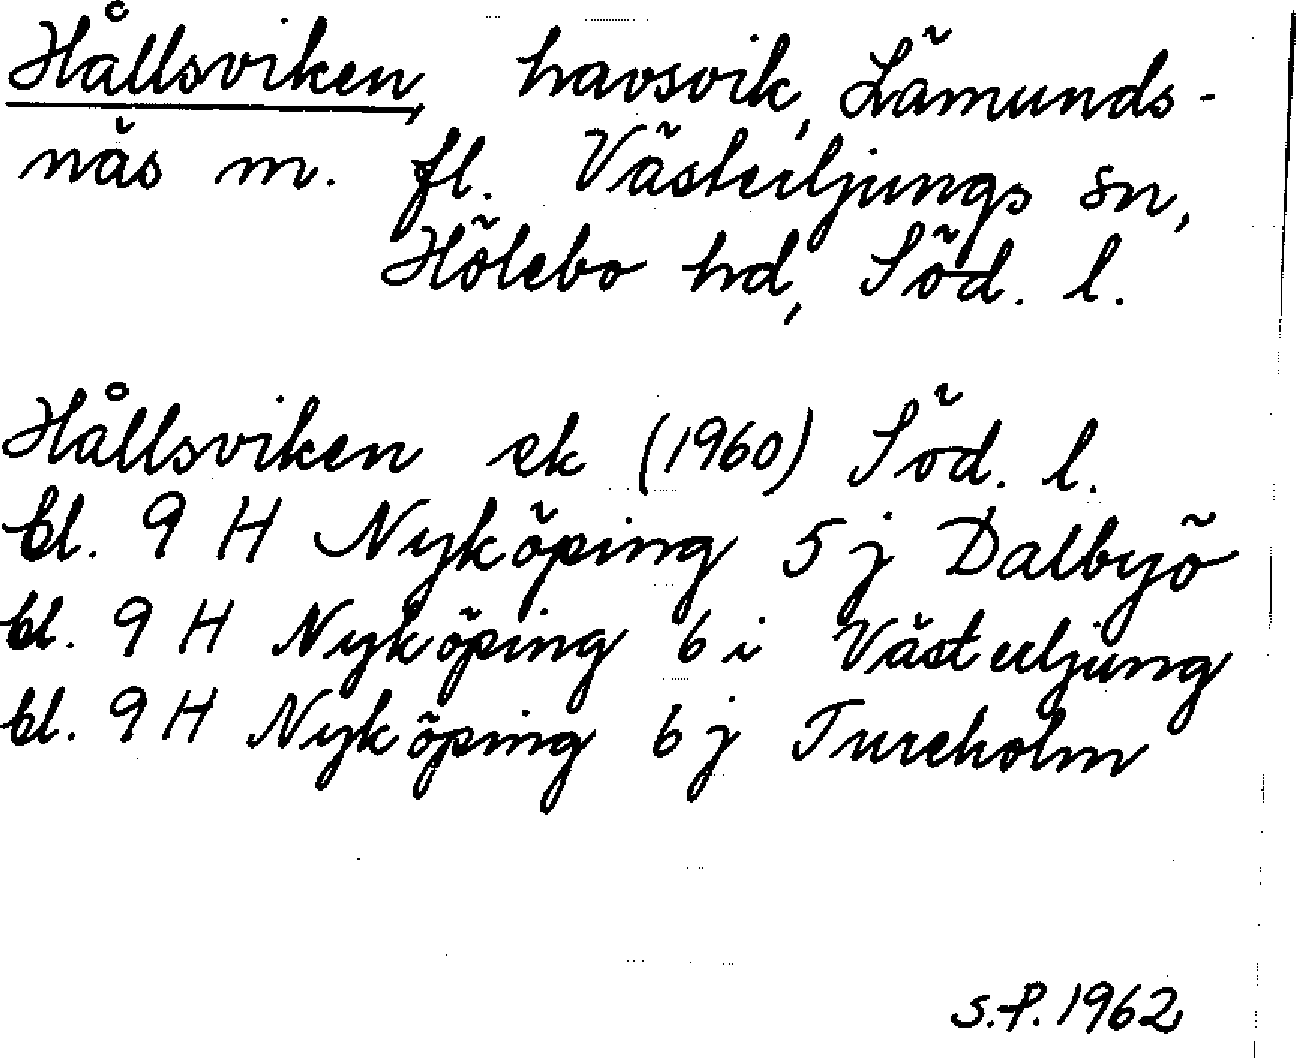 Hållsviken, havsvik, Lämunds-
näs m. fl. Västerljungs sn,
Hölebo hd, Söd. l.
Hållsviken ek (1960) Söd. l.
bl. 9 H Nyköping 5 j Dalbyö
bl. 9 H Nyköping 6 i Västerljung
bl. 9 H Nyköping 6 j Tureholm
S.P. 1962